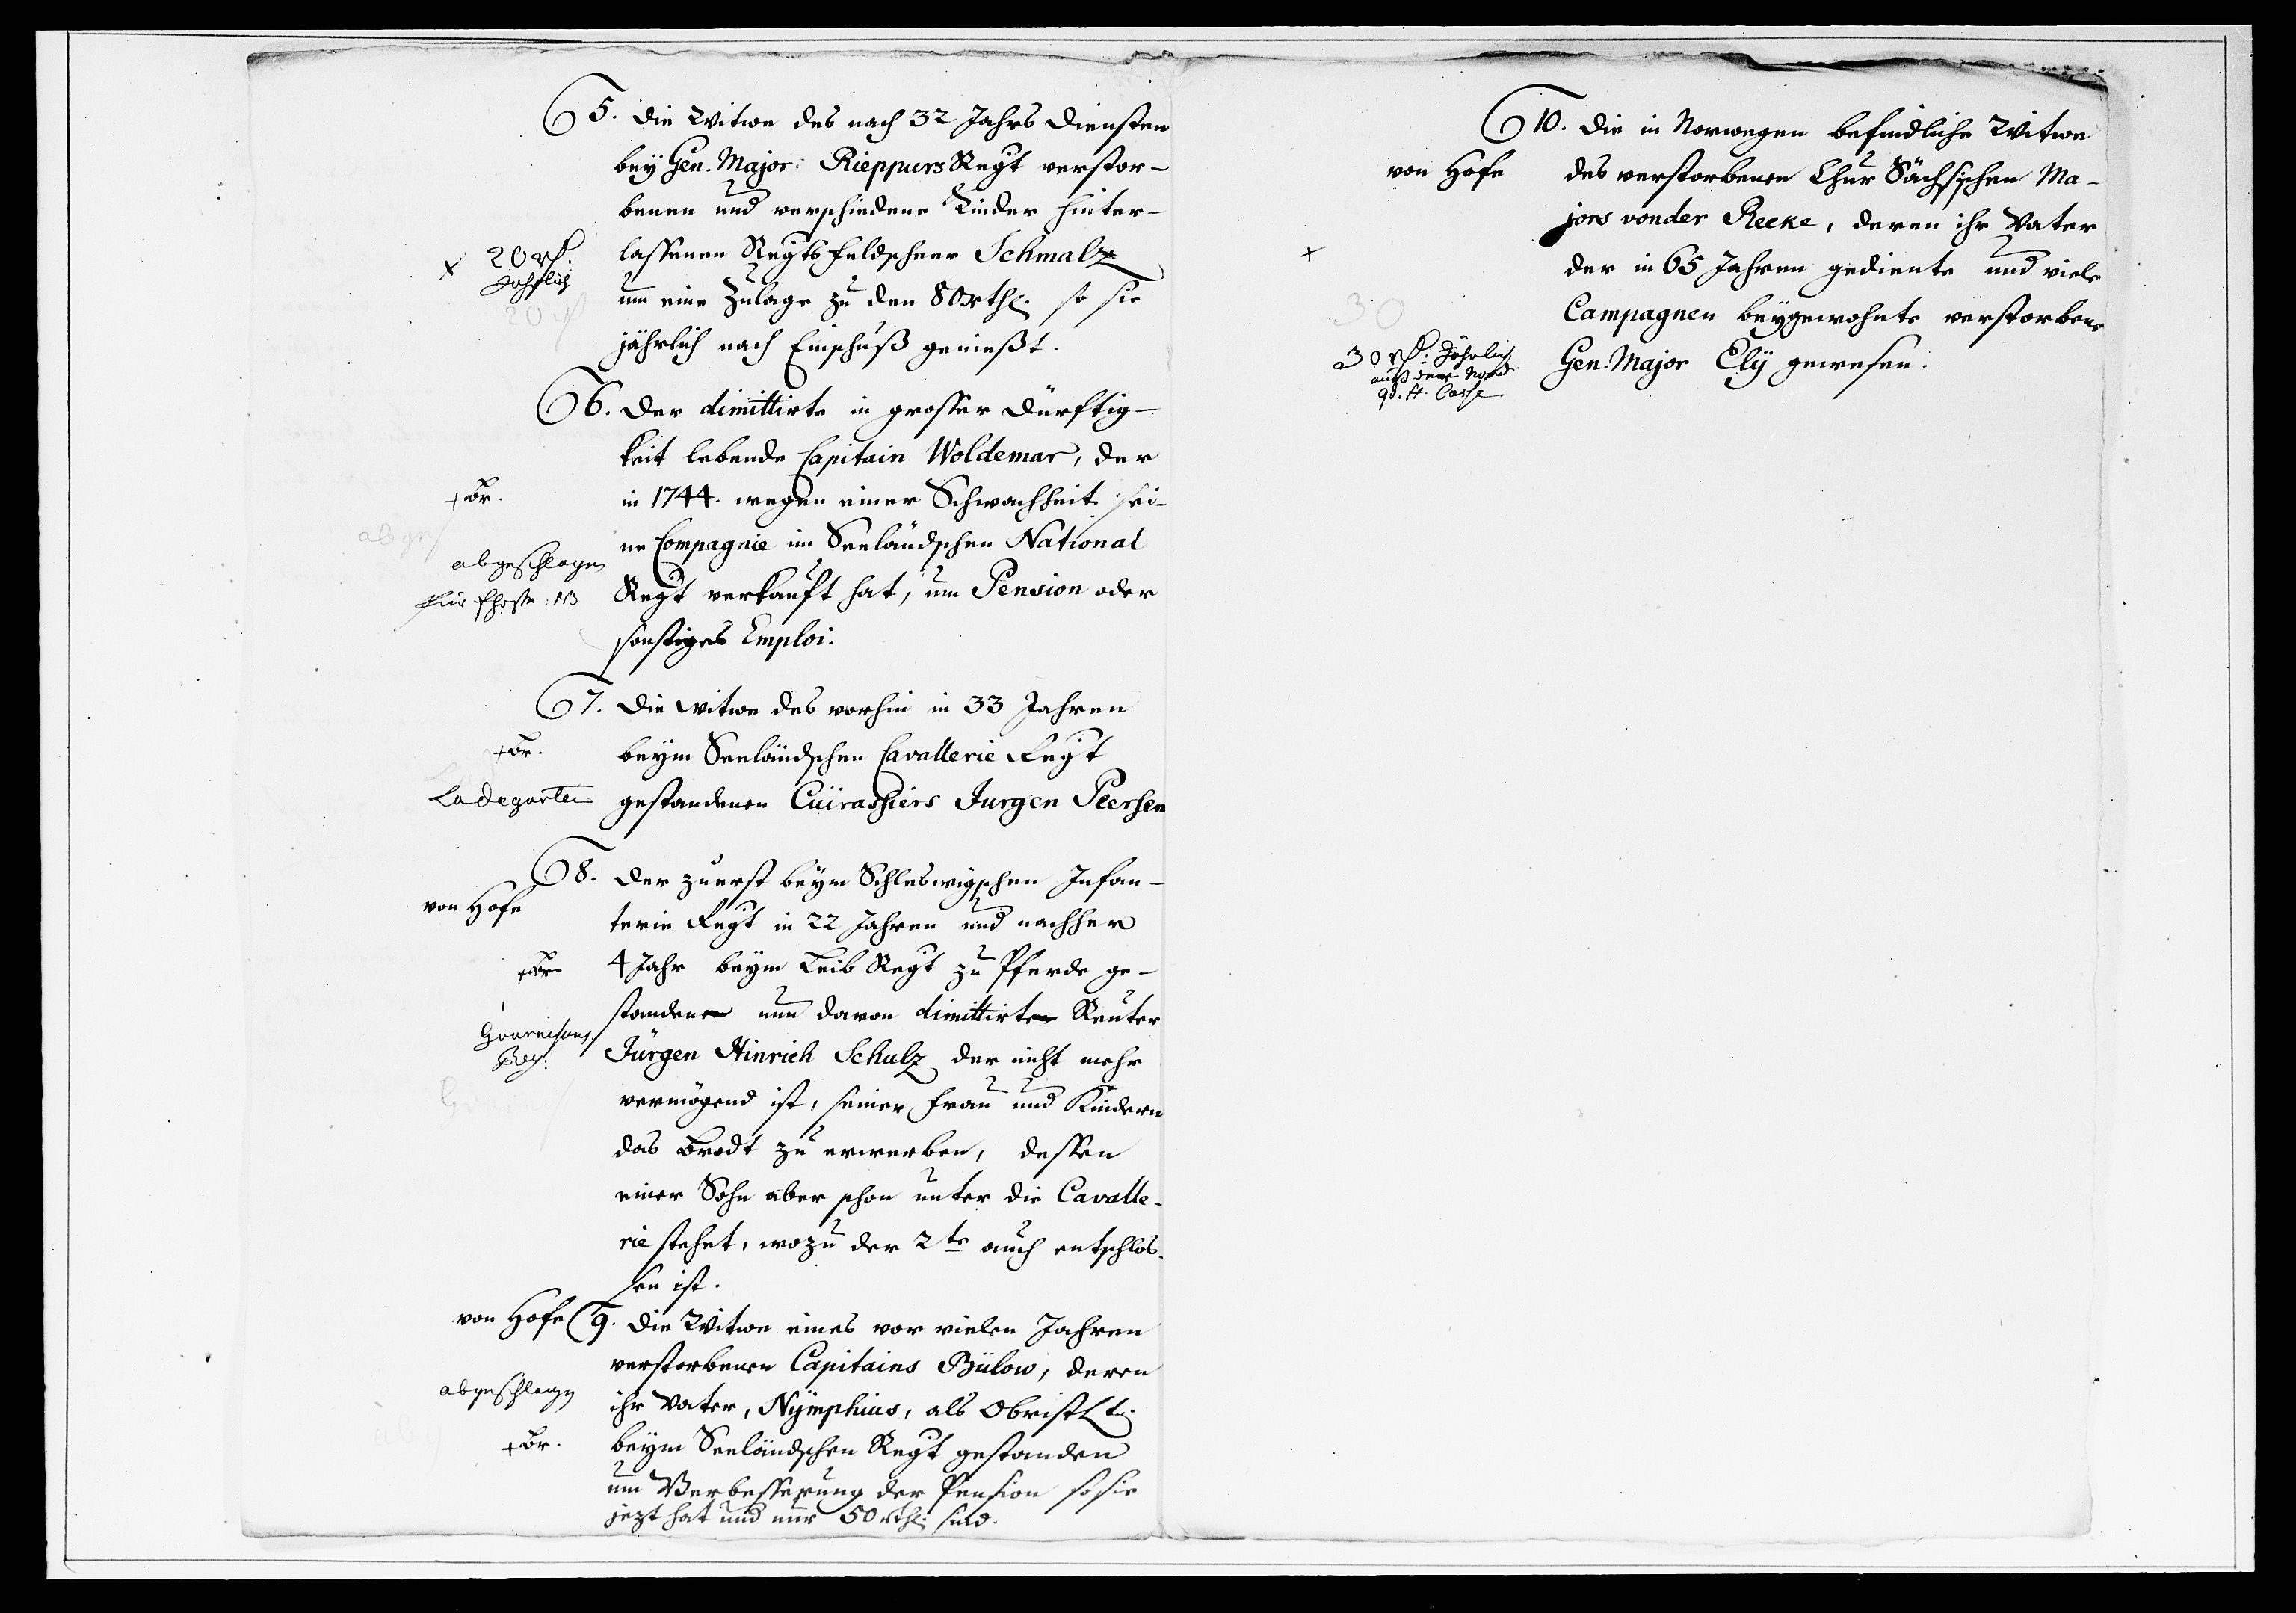 5. Die Witwe des nach 32 Jahrs Diensten
bey Gen. Major: Rieppurs Regt verstor-
benen und verschiedene Kinder hinter-
lassenen Regts feldscheer Schmalz
um eine Zulage zu den 80 rthl. so sie
jährlich nach Einschuß genießt.
x 20 rf:
Jährlich
20 rf
6. Der dimittirte in grosser Dürftig-
keit lebende Capitain Woldemar, der
in 1744. wegen einer Schwachheit sei-
ne Compagnie im Seeländschen National
Regt verkauft hat, um Pension oder
sonstiges Emploi.
+ Br.
abgeschlagen
7. Die witwe des vorhin in 33 Jahren
beym Seeländschen Cavallerie Regt
gestandenen Cuirassiers Jurgen Peersen
+ Br.
Ladegarten
8. Der zuerst beym Schleswigschen Infan-
terie Regt in 22 Jahren und nachher
4 Jahr beym Leib Regt zu Pferde ge-
standene nun davon dimittirte Reuter
Jürgen Hinrich Schulz der nicht mehr
vermögend ist, seiner frau und Kindern
das Brodt zu erwerben, dessen
einer Sohn aber schon unter die Cavalle-
rie stehet, wozu der 2te auch entschlos-
sen ist.
von Hofe
+ Br.
Guarnisons
Reg:
von Hofe 9. Die Witwe eines vor vielen Jahren
verstorbenen Capitains Bülow, deren
ihr Vater, Nÿmphius, als Obrist Lt.
beym Seeländschen Regt gestanden
um Verbesserung der Pension so sie
jezt hat und nur 50 rthl. sind.
abgeschlagen
+ Br.
10. Die in Norwegen befindliche Witwe
des verstorbenen Chur Sächsischen Ma-
jors vonder Recke, deren ihr Vater
der in 65 Jahren gediente und viele
Campagnen beygewohnte verstorbene
Gen. Major Elÿ gewesen.
von Hofe
x
30
30 rf: Jährlich
auß der Nord
Casse